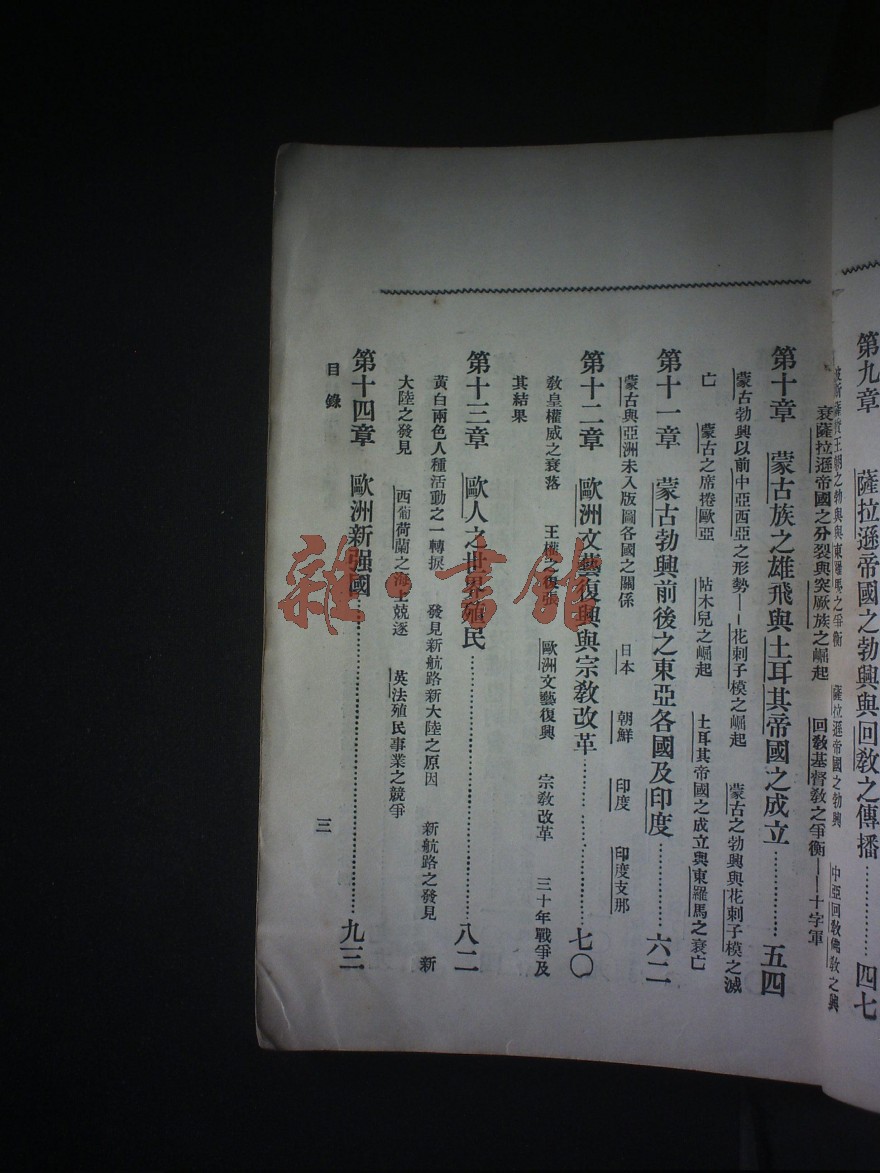 第九章 薩拉遜帝國之勃興與回敎之傳播…………四七
之勃興與東羅馬之爭衡 薩拉遜帝國之勃興 中亞回敎佛敎之興
衰薩拉遜帝國之分裂與突厥族之崛起 回敎基督敎之爭衡——十字軍
第十章 蒙古族之雄飛與土耳其帝國之成立…………五四
蒙古勃興以前中亞西亞之形勢——花剌子模之崛起 蒙古之勃興與花剌子模之滅
亡 蒙古之席捲歐亞 帖木兒之崛起 土耳其帝國之成立與東羅馬之衰亡
第十一章 蒙古勃興前後之東亞各國及印度…………六二
蒙古與亞洲未入版圖各國之關係 日本 朝鮮 印度 印度支那
第十二章 歐洲文藝復興與宗敎改革…………七〇
敎皇權威之衰落 王權之復張 歐洲文藝復興 宗敎改革 三十年戰爭及
其結果
第十三章 歐人之世界殖民…………八二
黃白兩色人種活動之一轉捩 發見新航路新大陸之原因 新航路之發見 新
大陸之發見 西葡荷蘭之海上競逐 英法殖民事業之競爭
第十四章 歐洲新强國…………九三
目錄 三
雜·書館